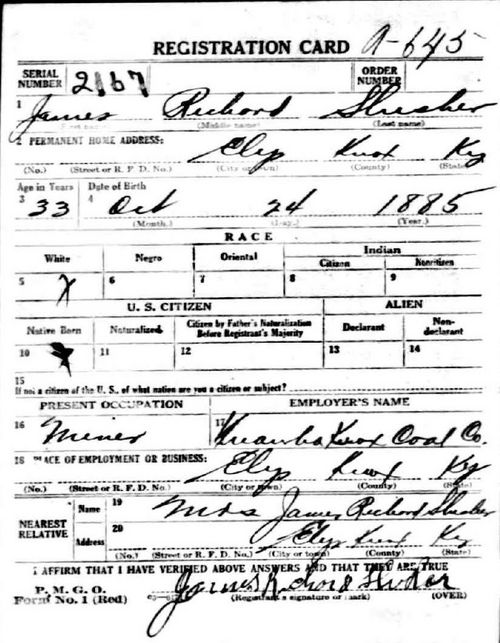 REGISTRATION CARD A-645
SERIAL NUMBER 2167 ORDER NUMBER
1 James Richard Slusher
(First name) (Middle name) (Last name)
2 PERMANENT HOME ADDRESS: Elys Knox Ky
(No.) (Street or R. F. D. No.) (City or town) (County) (State)
Age in Years Date of Birth
3 33 4 Oct 24 1885
(Month.) (Day.) (Year.)
RACE
White Negro Oriental Indian
Citizen Noncitizen
5 X 6 7 8 9
U. S. CITIZEN ALIEN
Native Born Naturalized Citizen by Father's Naturalization Before Registrant's Majority Declarant Non-declarant
10 11 12 13 14
15
If not a citizen of the U. S., of what nation are you a citizen or subject?
PRESENT OCCUPATION EMPLOYER'S NAME
16 Miner 17 Knox Coal Co.
18 PLACE OF EMPLOYMENT OR BUSINESS: Elys Knox Ky
(No.) (Street or R. F. D. No.) (City or town) (County) (State)
NEAREST RELATIVE Name 19 Mrs James Richard Slusher
Address 20 Elys Knox Ky
(No.) (Street or R. F. D. No.) (City or town) (County) (State)
I AFFIRM THAT I HAVE VERIFIED ABOVE ANSWERS AND THAT THEY ARE TRUE
P. M. G. O.
Form No. 1 (Red) James Richard Slusher
(Registrant's signature or mark) (OVER)